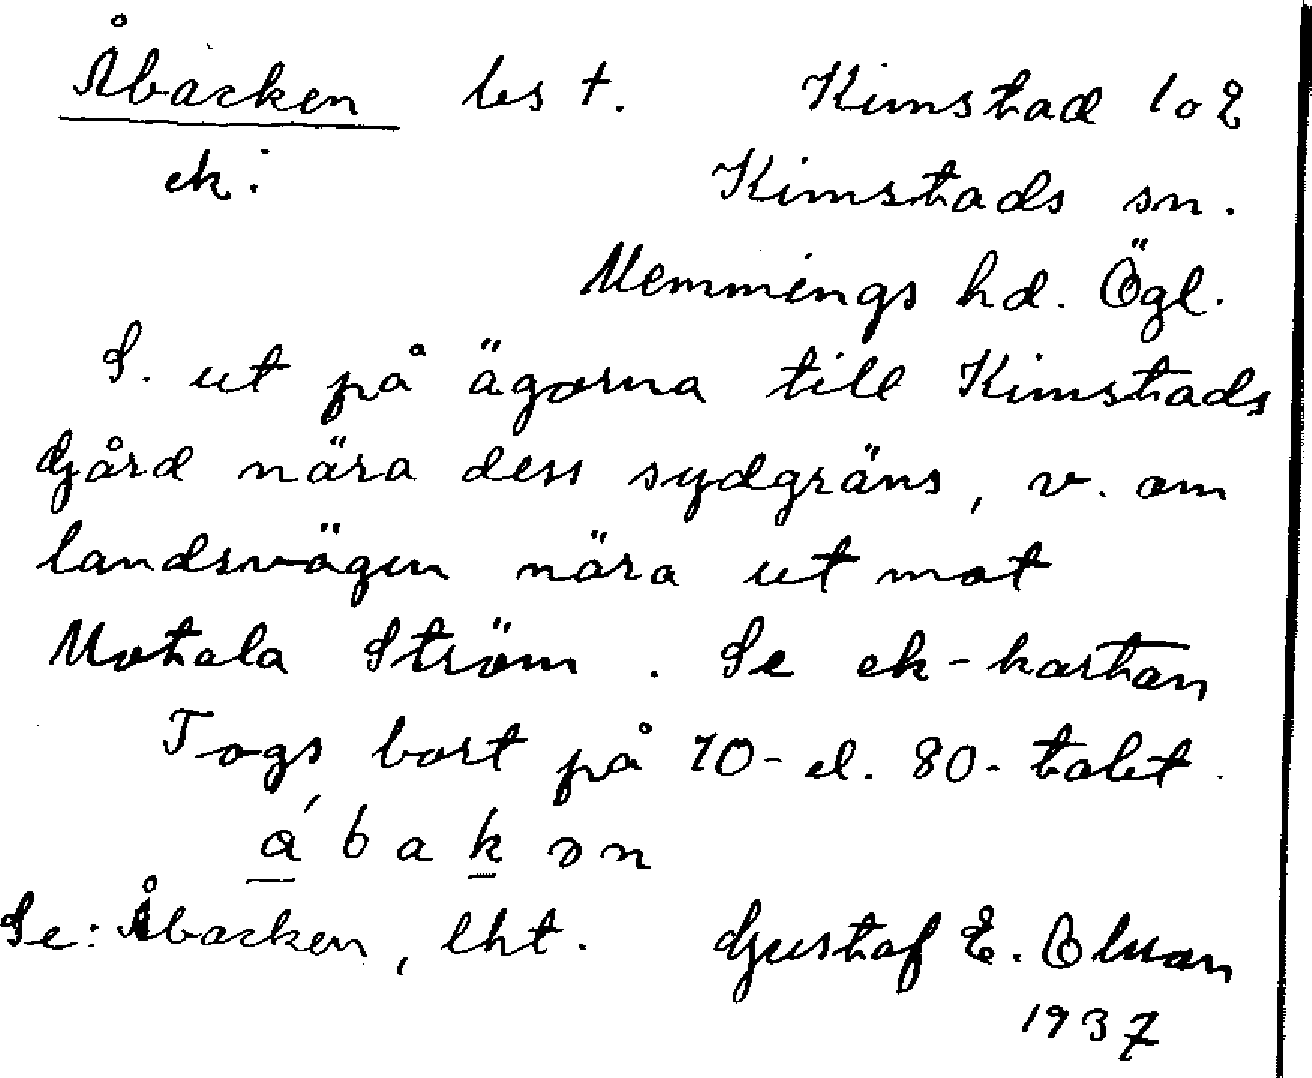 Åbacken bs †. Kimstad 1 o 2
ek: Kimstads sn.
Memmings hd. Ögl.
S. ut på ägorna till Kimstads
Gård nära dess sydgräns, v. om
landsvägen nära ut mot
Motala Ström. Se ek-kartan
Togs bort på 70- el. 80-talet.
á b a k ə n
Se: Åbacken, lht. Gustaf E. Olsson
1937